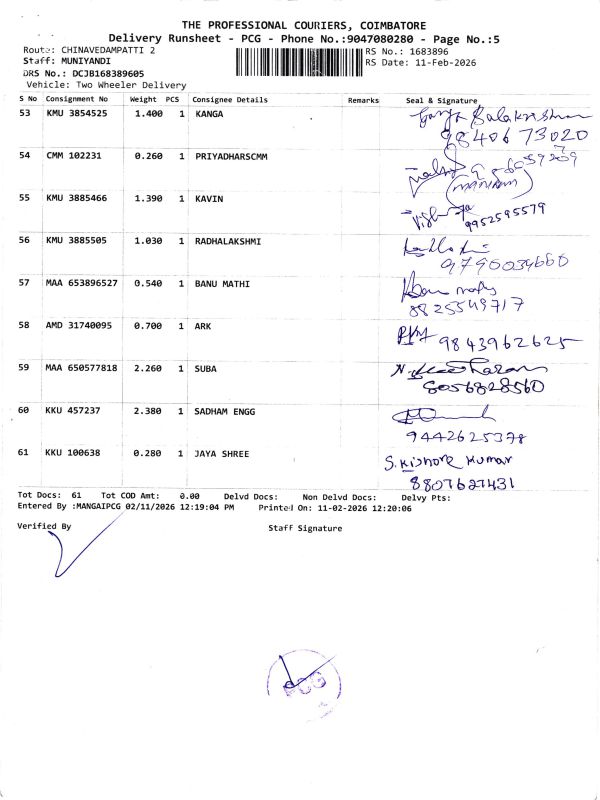 THE PROFESSIONAL COURIERS, COIMBATORE
Delivery Runsheet - PCG - Phone No.:9047080280 - Page No.:5
Route: CHINAVEDAMPATTI 2
RS No.: 1683896
Staff: MUNIYANDI
RS Date: 11-Feb-2026
DRS No.: DCJB168389605
Vehicle: Two Wheeler Delivery
S No Consignment No Weight PCS Consignee Details Remarks Seal & Signature
53 KMU 3854525 1.400 1 KANGA
Balakrishnan
98406 73020
54 CMM 102231 0.260 1 PRIYADHARSCMM
(MANIRAM)
55 KMU 3885466 1.390 1 KAVIN
9952595579
56 KMU 3885505 1.030 1 RADHALAKSHMI
9790034660
57 MAA 653896527 0.540 1 BANU MATHI
Banu mathy
8825549717
58 AMD 31740095 0.700 1 ARK
9843962625
59 MAA 650577818 2.260 1 SUBA
8056828560
60 KKU 457237 2.380 1 SADHAM ENGG
9442625378
61 KKU 100638 0.280 1 JAYA SHREE
S. Kishore Kumar
8807627431
Tot Docs: 61 Tot COD Amt: 0.00 Delvd Docs: Non Delvd Docs: Delvy Pts:
Entered By :MANGAIPCG 02/11/2026 12:19:04 PM Printed On: 11-02-2026 12:20:06
Verified By Staff Signature
PCG